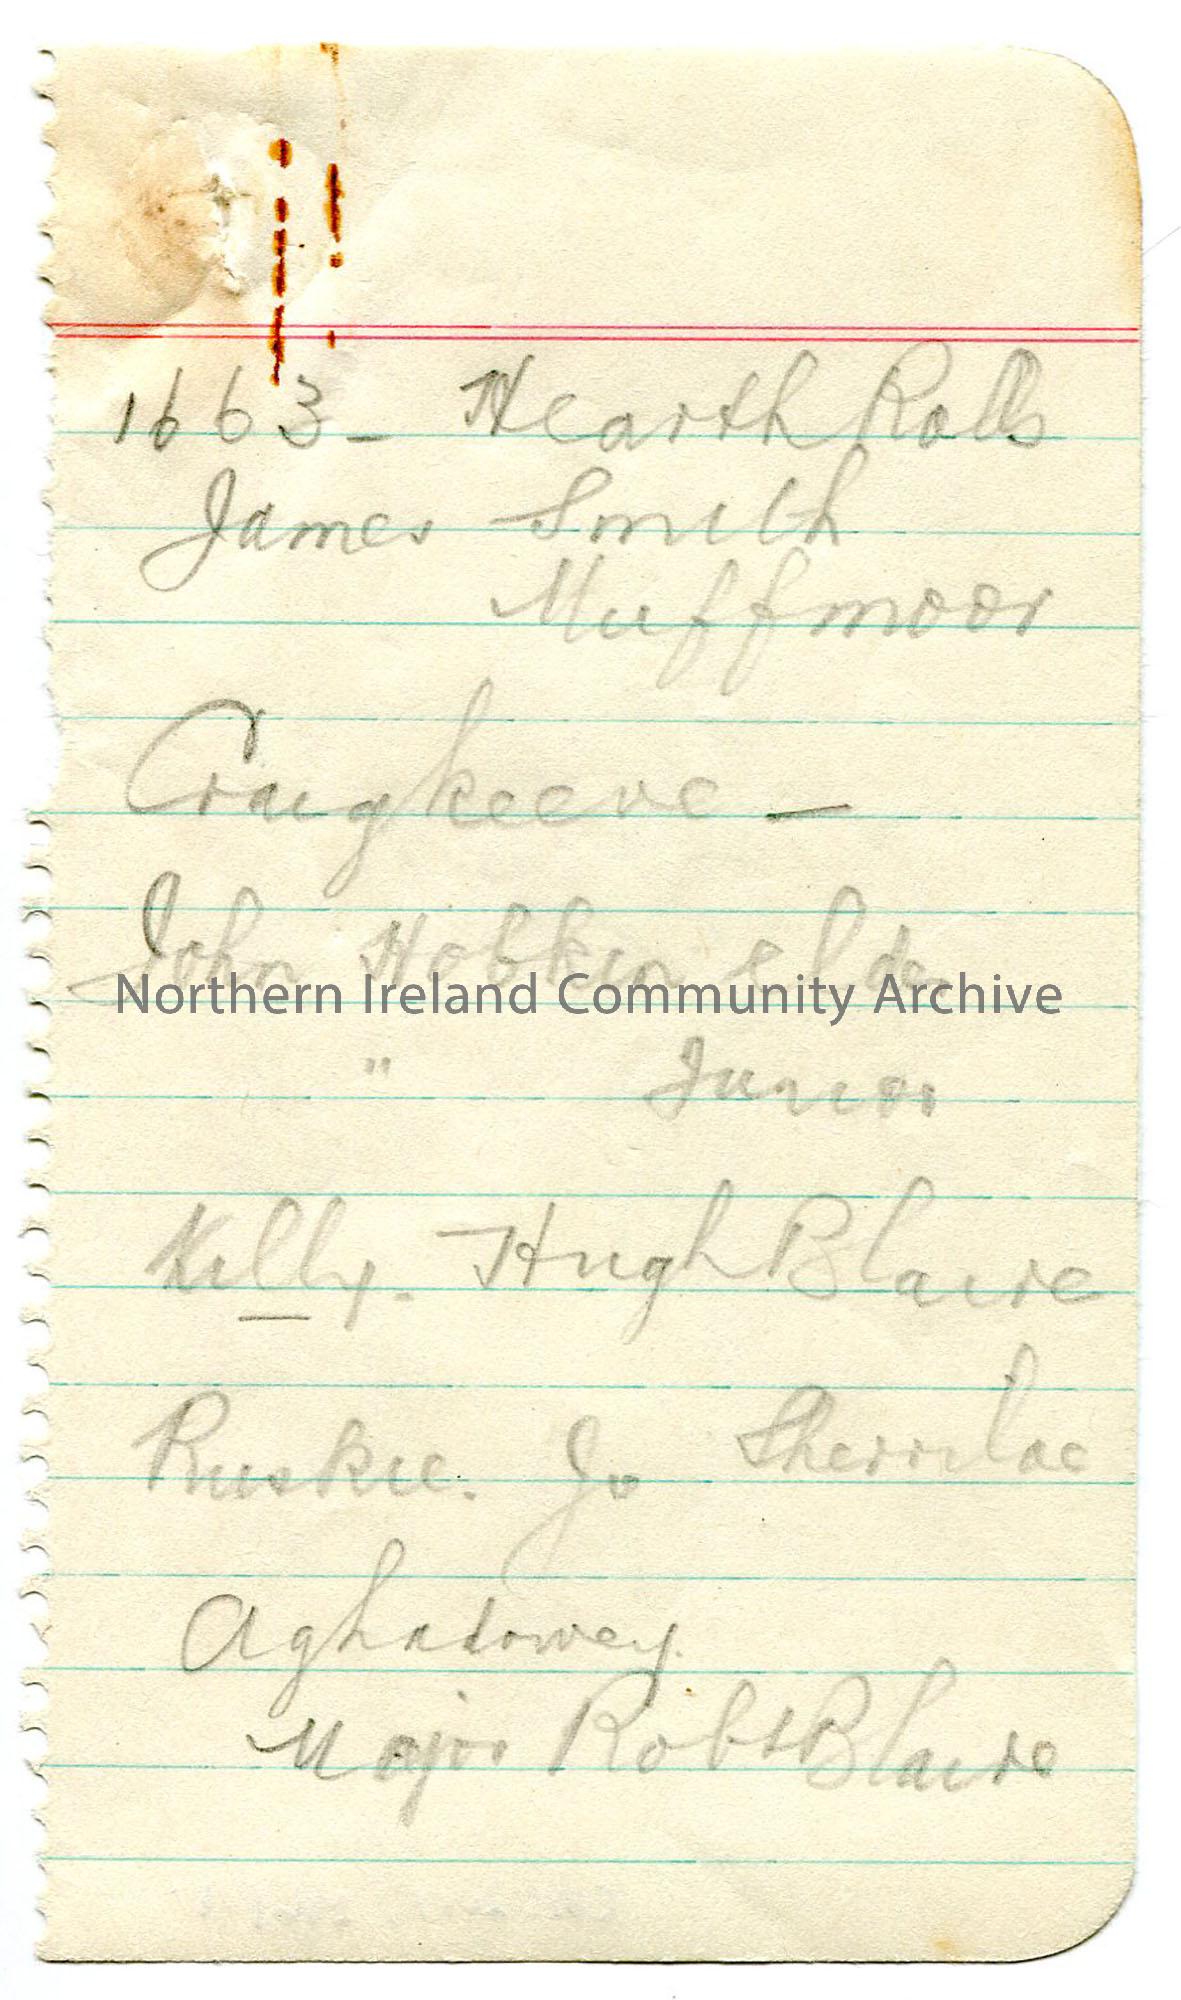 1663 - Hearth Rolls
James Smith
Muffmoor
Craigkeeve -
John Hobkin elder
Northern Ireland Community Archive
" Junior
Killy. Hugh Blaire
Ruskie. Jo
Aghadowey.
Major Robt Blaire